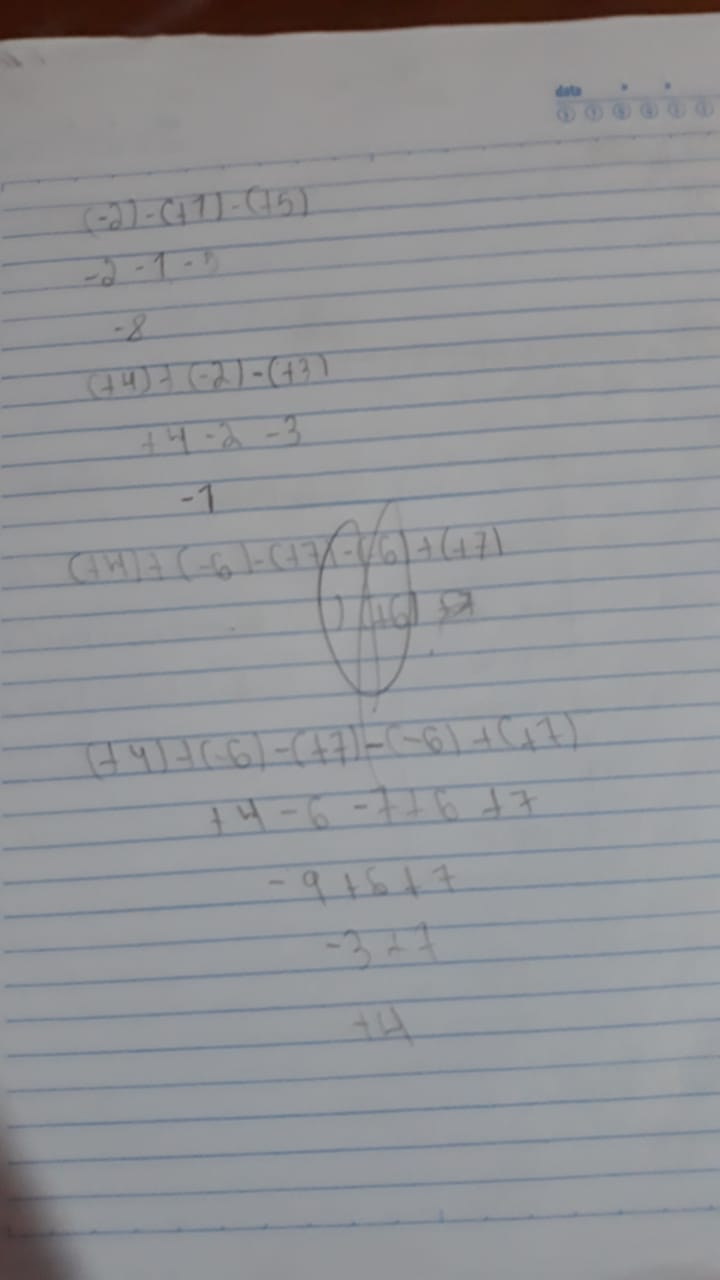 data
(-2)-(+1)-(+5)
-2 -1 -5
-8
(+4)+(-2)-(+3)
+4 -2 -3
-1
(+4)+(-6)-(+7)-(-6)+(+7)
(+6)
(+4)+(-6)-(+7)-(-6)+(+7)
+4 -6 -7+6 +7
-9+6+7
-3+7
+4